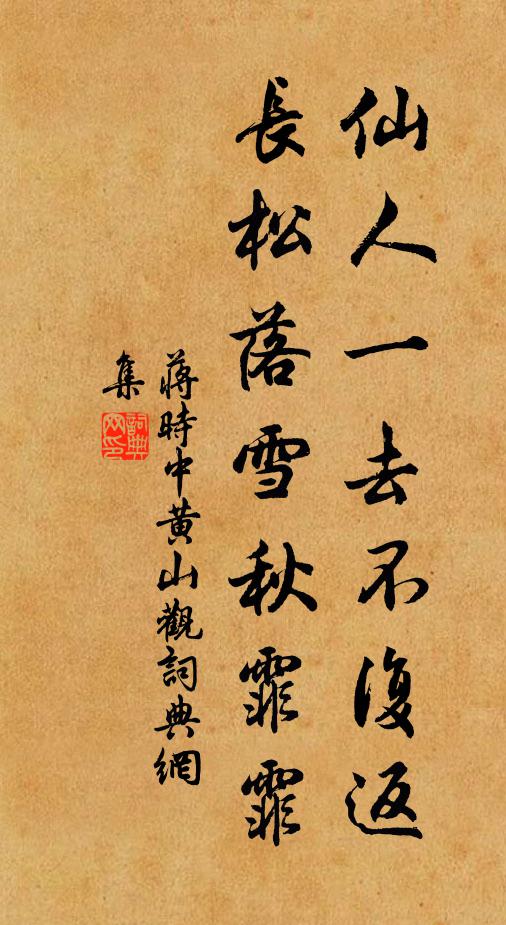 仙人一去不復返
長松落雪秋霏霏
蔣時中黃山觀詞典網
集
詞典網印